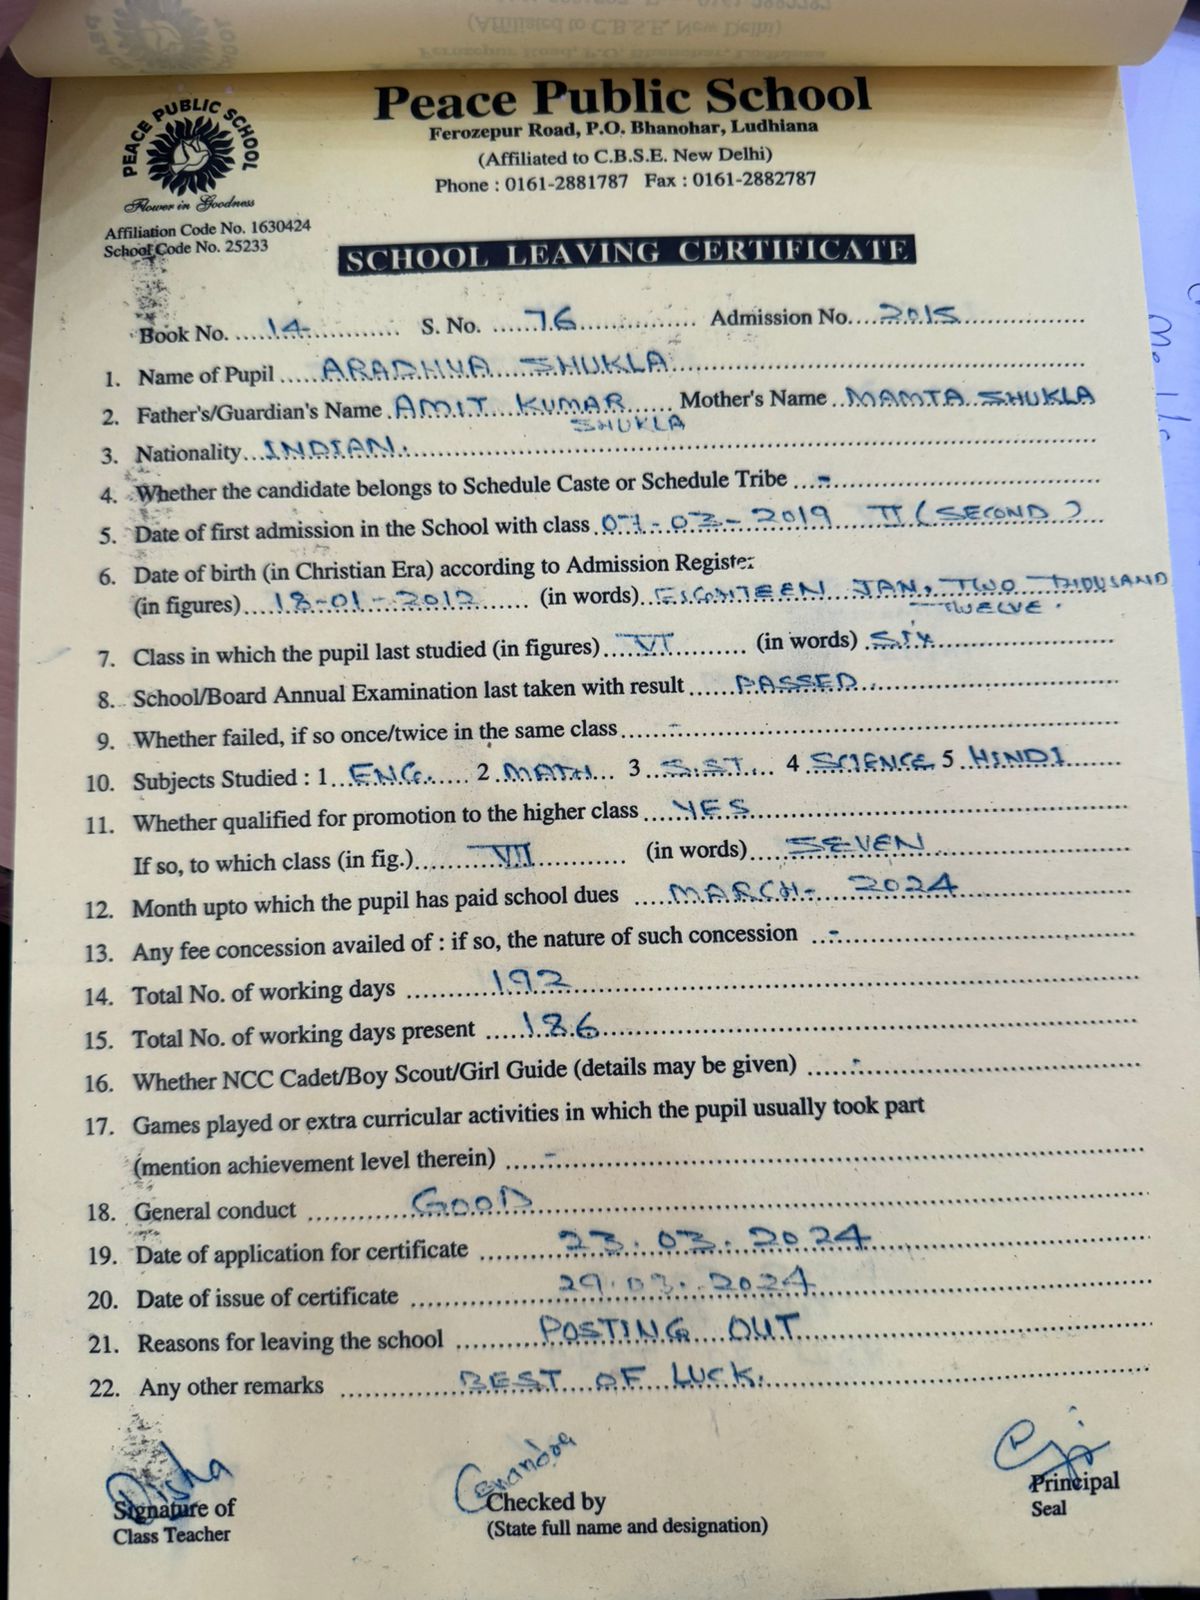 Peace Public School
Ferozepur Road, P.O. Bhanohar, Ludhiana
(Affiliated to C.B.S.E. New Delhi)
Phone : 0161-2881787 Fax : 0161-2882787
PEACE PUBLIC SCHOOL
Flower in Goodness
Affiliation Code No. 1630424
School Code No. 25233
SCHOOL LEAVING CERTIFICATE
Book No. 14 S. No. 76 Admission No. 2015
1. Name of Pupil ARADHYA SHUKLA
2. Father's/Guardian's Name AMIT KUMAR SHUKLA Mother's Name MAMTA SHUKLA
3. Nationality INDIAN.
4. Whether the candidate belongs to Schedule Caste or Schedule Tribe -
5. Date of first admission in the School with class 07-03-2019 II (SECOND)
6. Date of birth (in Christian Era) according to Admission Register
(in figures) 18-01-2012 (in words) EIGHTEEN JAN, TWO THOUSAND
TWELVE.
7. Class in which the pupil last studied (in figures) VI (in words) SIX
8. School/Board Annual Examination last taken with result PASSED
9. Whether failed, if so once/twice in the same class -
10. Subjects Studied : 1 ENG. 2 MATH 3 S.ST. 4 SCIENCE 5 HINDI
11. Whether qualified for promotion to the higher class YES
If so, to which class (in fig.) VII (in words) SEVEN
12. Month upto which the pupil has paid school dues MARCH- 2024
13. Any fee concession availed of : if so, the nature of such concession -
14. Total No. of working days 192
15. Total No. of working days present 186
16. Whether NCC Cadet/Boy Scout/Girl Guide (details may be given) -
17. Games played or extra curricular activities in which the pupil usually took part
(mention achievement level therein) -
18. General conduct GOOD
19. Date of application for certificate 23.03.2024
20. Date of issue of certificate 29.03.2024
21. Reasons for leaving the school POSTING OUT
22. Any other remarks BEST OF LUCK.
Disha
Signature of
Class Teacher
Checked by
(State full name and designation)
Principal
Seal